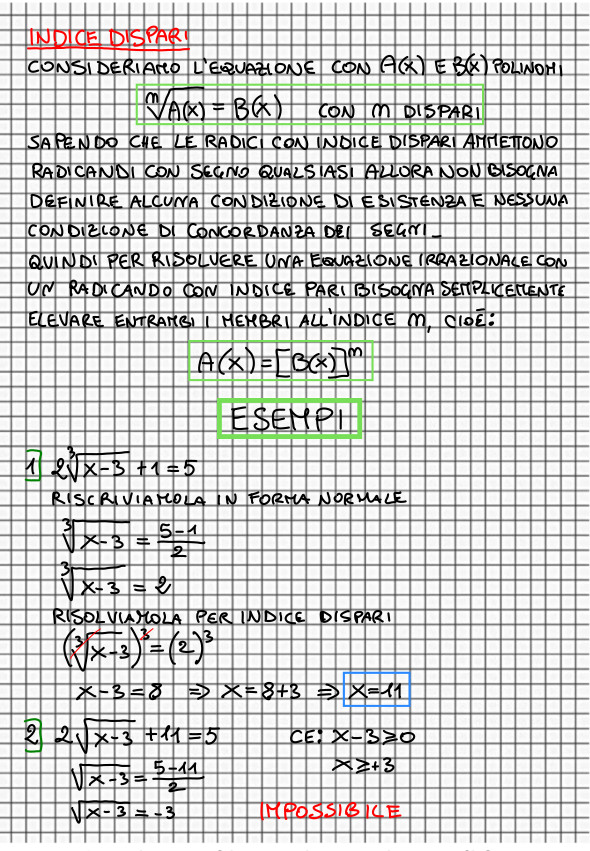 INDICE DISPARI
CONSIDERIAMO L'EQUAZIONE CON A(x) E B(x) POLINOMI
ⁿ√A(x) = B(x) CON n DISPARI
SAPENDO CHE LE RADICI CON INDICE DISPARI AMMETTONO
RADICANDI CON SEGNO QUALSIASI ALLORA NON BISOGNA
DEFINIRE ALCUNA CONDIZIONE DI ESISTENZA E NESSUNA
CONDIZIONE DI CONCORDANZA DEI SEGNI_
QUINDI PER RISOLVERE UNA EQUAZIONE IRRAZIONALE CON
UN RADICANDO CON INDICE PARI BISOGNA SEMPLICEMENTE
ELEVARE ENTRAMBI I MEMBRI ALL'INDICE n, CIOÈ:
A(x)=[B(x)]ⁿ
ESEMPI
1 2∛(x-3) +1=5
RISCRIVIAMOLA IN FORMA NORMALE
∛(x-3) = (5-1)/2
∛(x-3) = 2
RISOLVIAMOLA PER INDICE DISPARI
(∛(x-3))³=(2)³
x-3=8 ⇒ x=8+3 ⇒ x=11
2 2√(x-3) +11=5 CE: x-3≥0
√(x-3) = (5-11)/2 x≥+3
√(x-3) = -3 IMPOSSIBILE